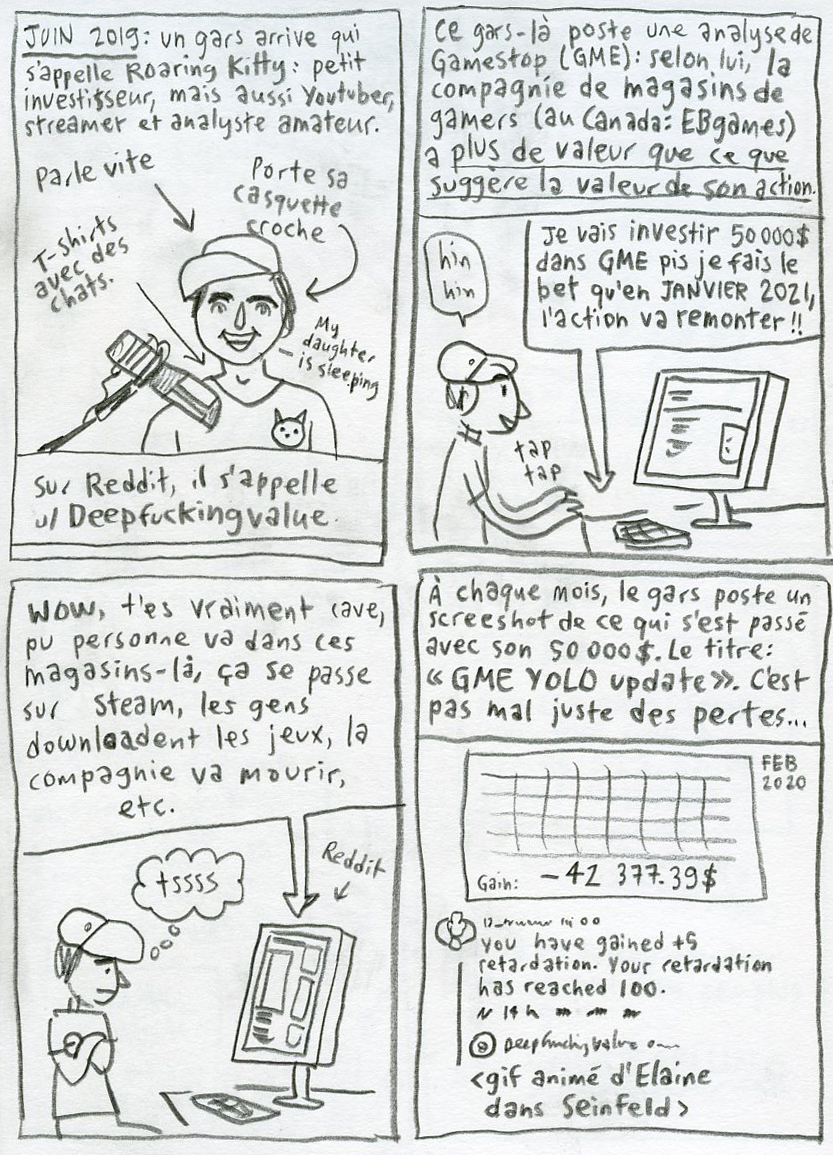 JUIN 2019: un gars arrive qui
s'appelle Roaring Kitty: petit
investisseur, mais aussi Youtuber,
streamer et analyste amateur.
Parle vite
Porte sa
casquette
croche
T-shirts
avec des
chats.
My
daughter
is sleeping
Sur Reddit, il s'appelle
u/Deepfuckingvalue.
Ce gars-là poste une analyse de
Gamestop (GME): selon lui, la
compagnie de magasins de
gamers (au Canada: EBgames)
a plus de valeur que ce que
suggère la valeur de son action.
Je vais investir 50 000$
dans GME pis je fais le
bet qu'en JANVIER 2021,
l'action va remonter!!
hin
hin
tap
tap
WOW, t'es vraiment cave,
pu personne va dans ces
magasins-là, ça se passe
sur Steam, les gens
downloadent les jeux, la
compagnie va mourir,
etc.
tssss
Reddit
À chaque mois, le gars poste un
screeshot de ce qui s'est passé
avec son 50 000$. Le titre:
« GME YOLO update ». C'est
pas mal juste des pertes...
FEB
2020
Gain: -42 377.39$
you have gained +5
retardation. Your retardation
has reached 100.
14 h
Deepfuckingvalue
<gif animé d'Elaine
dans Seinfeld>